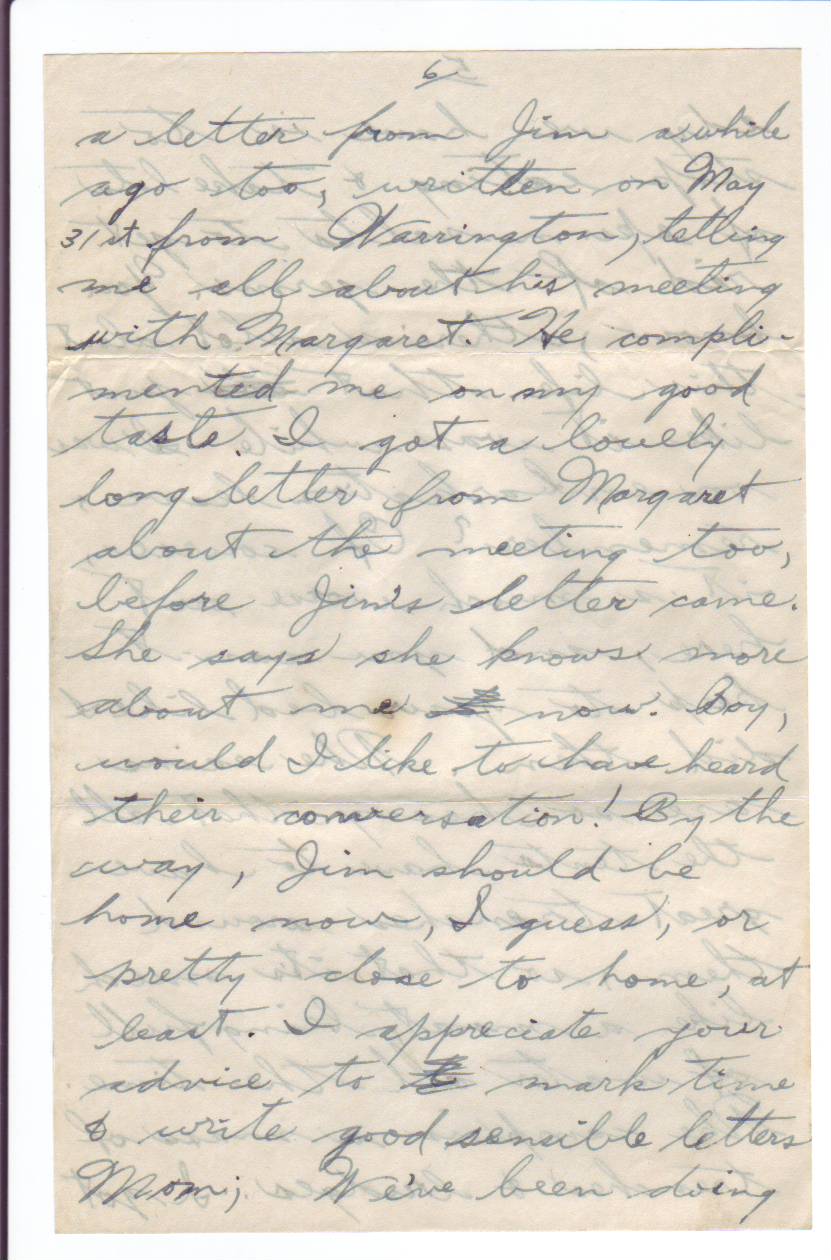 6
a letter from Jim awhile
ago too, written on May
31st from Warrington, telling
me all about his meeting
with Margaret. He compli-
mented me on my good
taste. I got a lovely
long letter from Margaret
about the meeting too,
before Jim's letter came.
She says she knows more
about me now. Boy,
would I like to have heard
their conversation! By the
way, Jim should be
home now, I guess, or
pretty close to home, at
least. I appreciate your
advice to mark time
& write good sensible letters
Mom; We've been doing